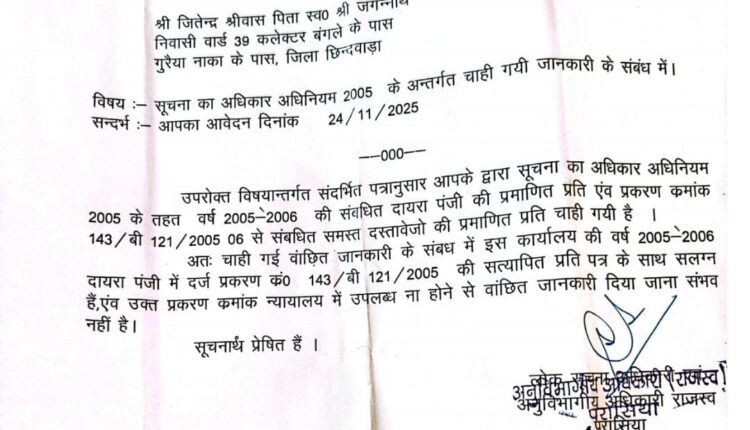 श्री जितेन्द्र श्रीवास पिता स्व0 श्री जगन्नाथ
निवासी वार्ड 39 कलेक्टर बंगले के पास
गुरैया नाका के पास, जिला छिन्दवाड़ा
विषय :– सूचना का अधिकार अधिनियम 2005 के अन्तर्गत चाही गयी जानकारी के संबंध में।
सन्दर्भ :– आपका आवेदन दिनांक 24/11/2025
––000––
उपरोक्त विषयान्तर्गत संदर्भित पत्रानुसार आपके द्वारा सूचना का अधिकार अधिनियम
2005 के तहत वर्ष 2005–2006 की संबधित दायरा पंजी की प्रमाणित प्रति एंव प्रकरण कमांक
143/बी 121/2005 06 से संबधित समस्त दस्तावेजो की प्रमाणित प्रति चाही गयी है ।
अतः चाही गई वांछित जानकारी के संबध में इस कार्यालय की वर्ष 2005–2006
दायरा पंजी में दर्ज प्रकरण कं0 143/बी 121/2005 की सत्यापित प्रति पत्र के साथ सलग्न
हैं,एंव उक्त प्रकरण कमांक न्यायालय में उपलब्ध ना होने से वांछित जानकारी दिया जाना संभव
नहीं है।
सूचनार्थ प्रेषित हैं ।
लोक सूचना अधिकारी
अनुविभागीय अधिकारी (राजस्व)
अनुविभागीय अधिकारी राजस्व
परासिया
परासिया